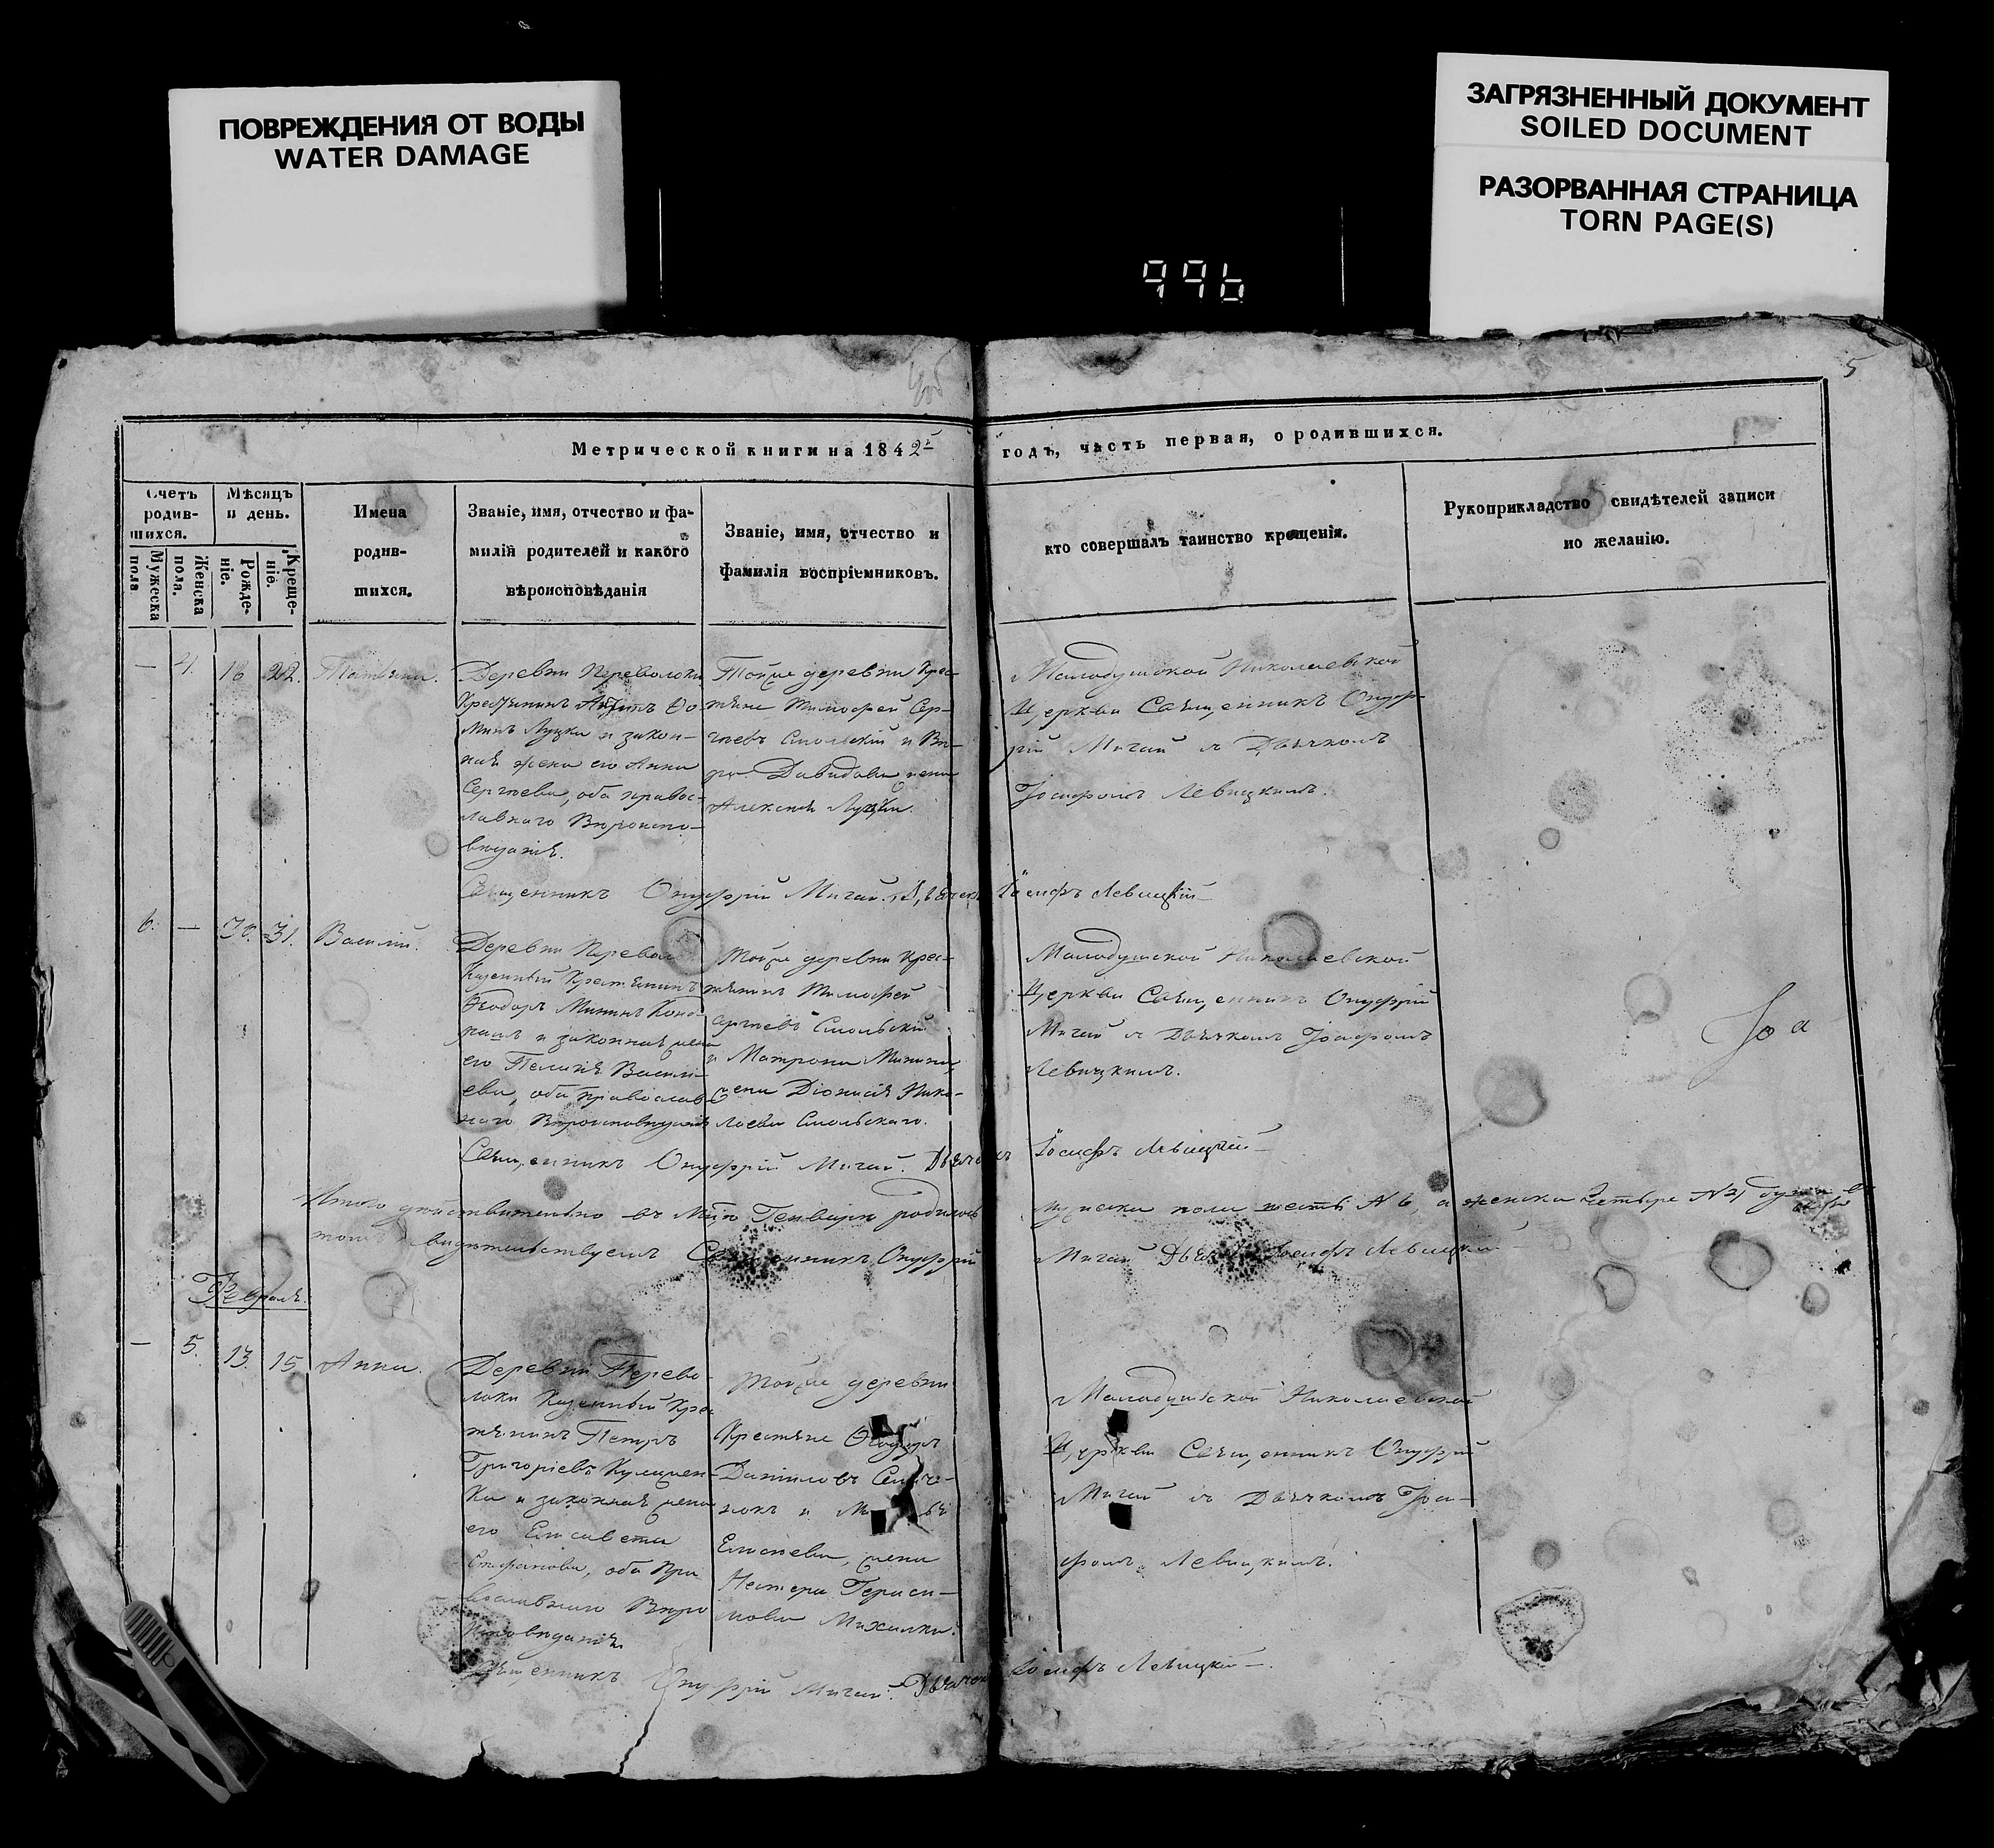 ПОВРЕЖДЕНИЯ ОТ ВОДЫ
WATER DAMAGE
ЗАГРЯЗНЕННЫЙ ДОКУМЕНТ
SOILED DOCUMENT
РАЗОРВАННАЯ СТРАНИЦА
TORN PAGE(S)
996
5
Метрической книги на 1842й годъ, часть первая, о родившихся.
Счетъ родив-
шихся.
Мужеска пола
Женска пола.
Мѣсяцъ
и день.
Рожде-
ніе.
Креще-
ніе.
Имена
родив-
шихся.
Званіе, имя, отчество и фа-
милій родителей и какого
вѣроисповѣданія
Званіе, имя, отчество и
фамилія воспріемниковъ.
кто совершалъ таинство крещенія.
Рукоприкладство свидѣтелей записи
по желанію.
— 4. 18 22. Татьяна.
Деревни Переволоки
Луцки и закон-
ная жена его Анна
Сергѣева, оба правос-
лавнаго Вѣроиспо-
вѣданія.
Тойже деревни Крес-
тьяне Тимофей Сер-
гѣевъ Смольскій и Вѣ-
ра Давидова жена
Алексея Луцки.
Малодушской Николаевской
Церкви Священникъ Онуф-
рій Мигай съ Дьячкомъ
Іосифомъ Левицкимъ.
Священникъ Онуфрій Мигай. Дьячекъ Іосифъ Левицкій
6. — 30. 31. Василій.
Деревни
Казенный Крестьянинъ
Ѳеодоръ Мининъ
и законная жена
его Пелагія Василі-
ева, оба православ-
наго Вѣроисповѣданія
Тойже деревни Крес-
тьянинъ Тимофей
Сергѣевъ Смольскій
и Матрона Минина,
жена Діонисія Нико-
лаева Смольскаго.
Малодушской Николаевской
Церкви Священникъ Онуфрій
Мигай съ Дьячкомъ Іосифомъ
Левицкимъ.
Священникъ Онуфрій Мигай. Дьячекъ Іосифъ Левицкій
Итого дѣйствительно въ Генварѣ родилось мужеска пола шесть № 6, а женска четыре № 4
томъ свидѣтельствуемъ Священникъ Онуфрій Мигай Дьячекъ Іосифъ Левицкій
Февраль.
— 5. 13. 15 Анна.
Деревни Перево-
локи Казенный Крес-
тьянинъ Петръ
Григоріевъ
и законная жена
его Елисавета
Стефанова, оба Пра-
вославнаго Вѣро
исповѣданія.
Тойже деревни
Крестьяне Ѳеодоръ
Даниловъ
и
жена
Нестера Гераси-
мова Михалки.
Малодушской Николаевской
Церкви Священникъ Онуфрій
Мигай съ Дьячкомъ Іоси-
фомъ Левицкимъ.
Священникъ Онуфрій Мигай. Дьячекъ Іосифъ Левицкій